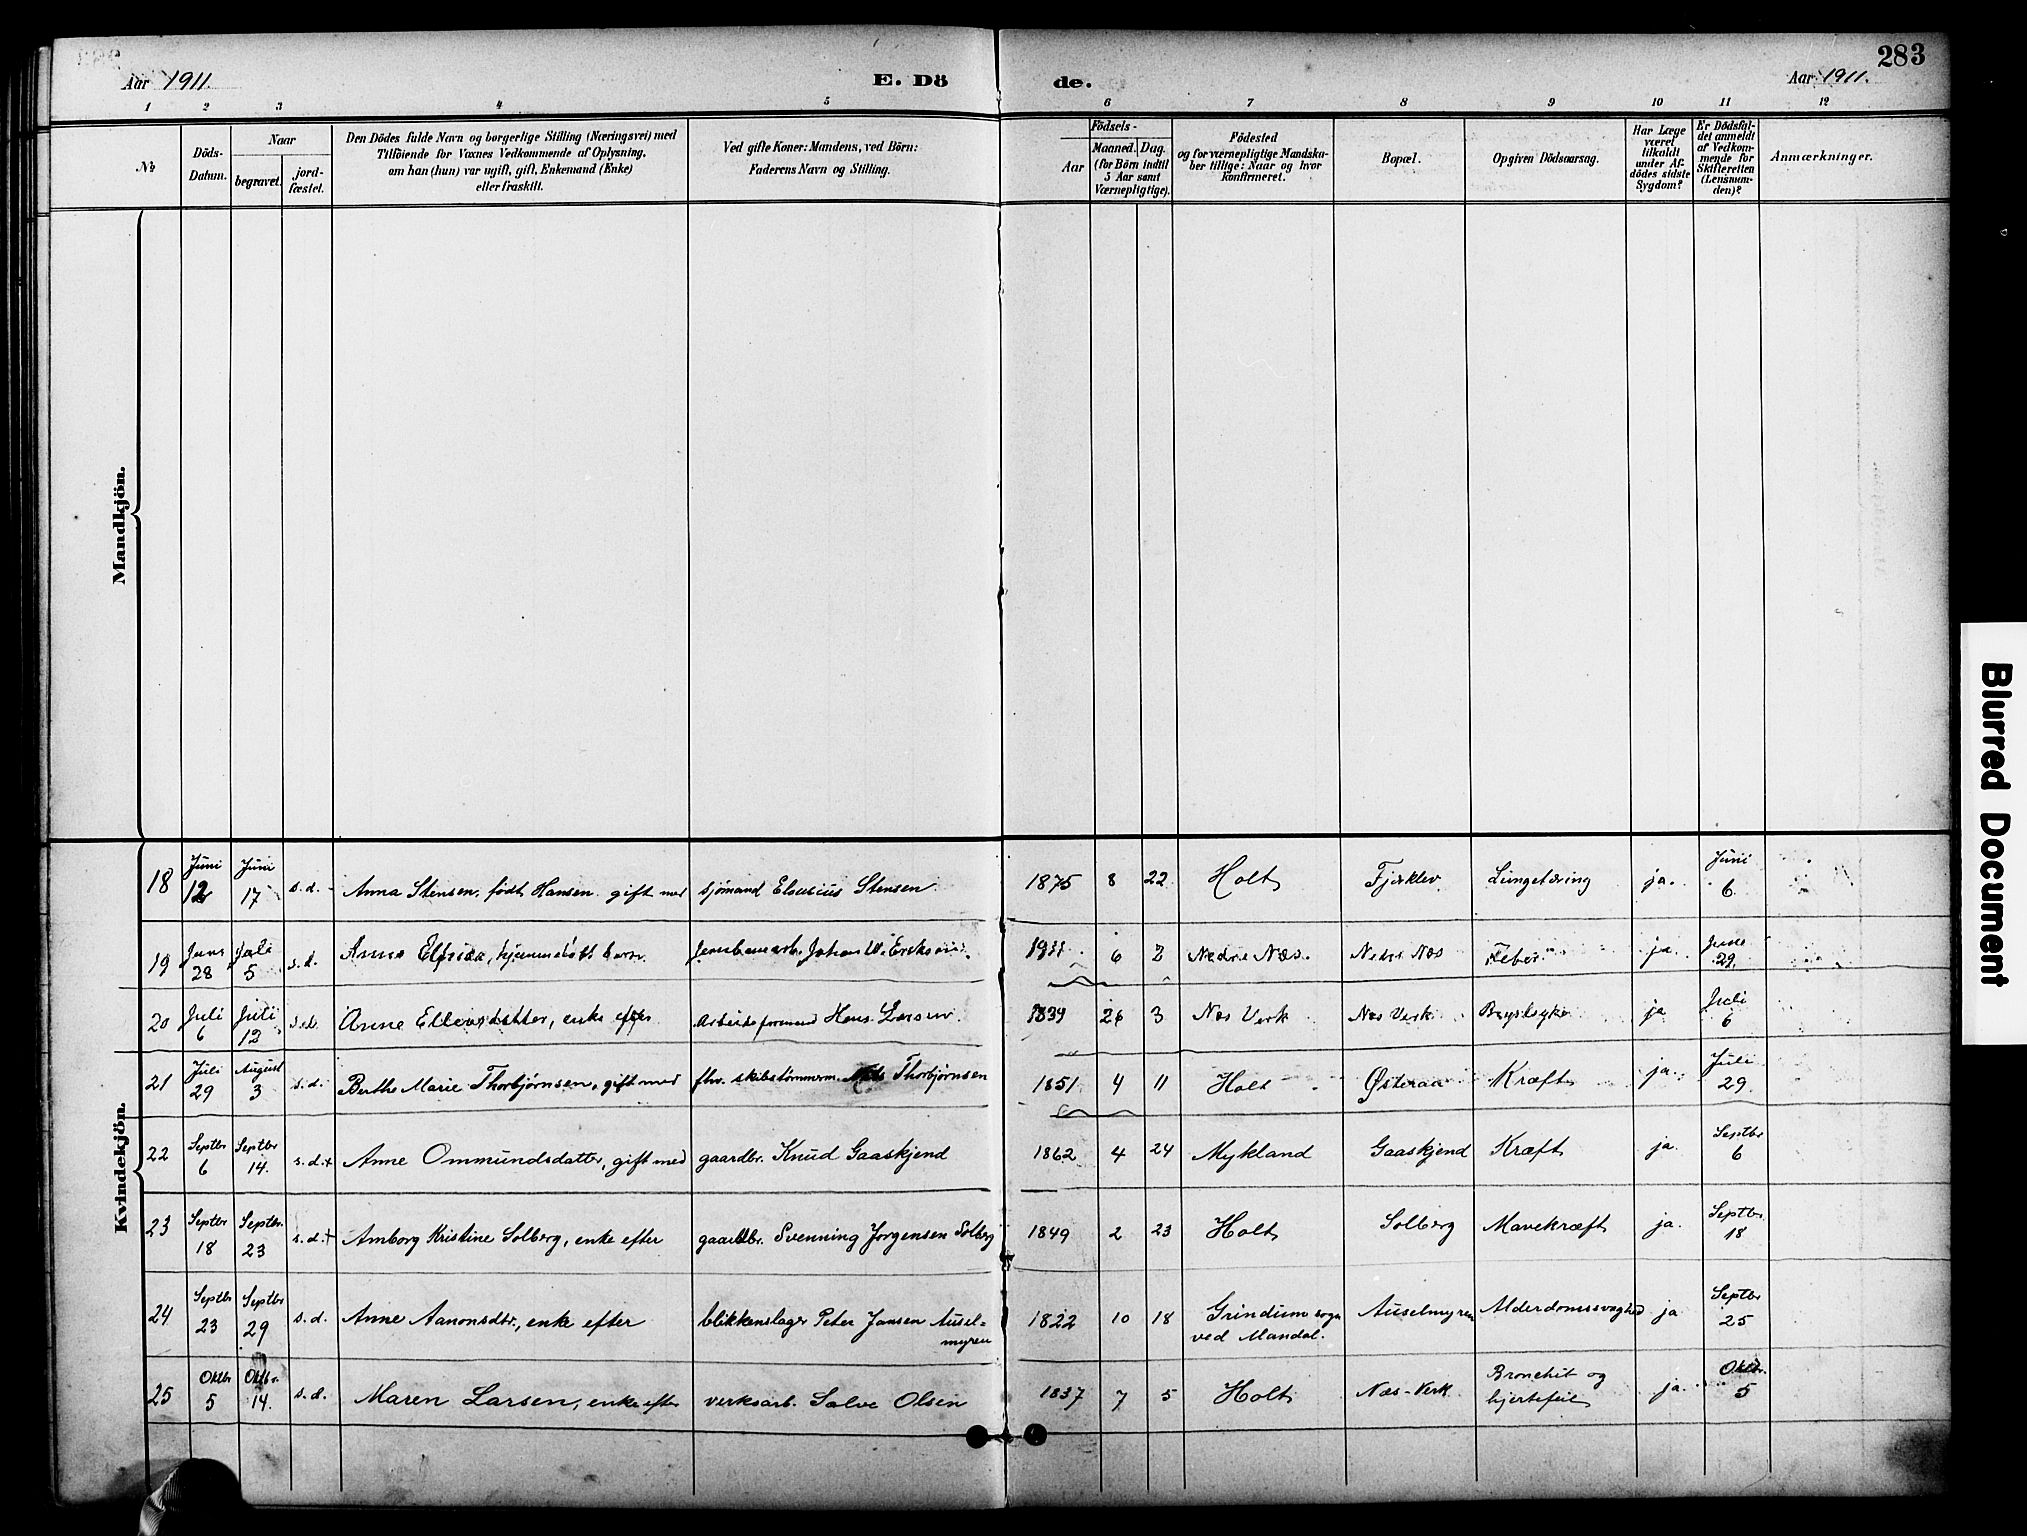 283
Aar 1911. E. Dö de. Aar 1911.
1 2 3 4 5 6 7 8 9 10 11 12
№
Döds-
Datum.
Naar
begravet.
jord-
fæstet.
Den Dödes fulde Navn og borgerlige Stilling (Næringsvei) med
Tilföiende for Voxnes Vedkommende af Oplysning,
om han (hun) var ugift, gift, Enkemand (Enke)
eller fraskilt.
Ved gifte Koner: Mandens, ved Börn:
Faderens Navn og Stilling.
Födsels-
Aar
Maaned. Dag.
(för Börn indtil
5 Aar samt
Værnepligtige).
Födested
og for værnepligtige Mandska-
ber tillige: Naar og hvor
konfirmeret.
Bopæl.
Opgiven Dödsaarsag.
Har Læge
været
tilkaldt
under Af-
dödes sidste
Sygdom?
Er Dödsfal-
det anmeldt
af Vedkom-
mende for
Skifteretten
(Lensman-
den)?
Anmærkninger.
Mandkjön.
Kvindekjön.
18 Juni 12 Juni 17 s.d. Anna Stensen, født Hansen gift med sjømand Stensen 1875 8 22 Holt Fjærklev Lungetæring ja. Juni 6
19 Juni 28 Juli 5 s.d. hjemmedøbt barn Johan W. 1911 6 2 Nedre Næs. Nedre Næs Feber ja. June 29
20 Juli 6 Juli 12 s.d. Anne Ellevsdatter, enke efter Arbeidsformand Hans Larsen 1839 26 3 Næs Verk Næs Verk Brystsyke ja Juli 6
21 Juli 29 August 3 s.d. Berthe Marie Thorbjørnsen, gift med fhv. skibstømmerm. Thorbjørnsen 1851 4 11 Holt Østeraa Kræft ja. Juli 29
22 Septbr 6 Septbr 14. s.d. Anne Ommundsdatter, gift med gaardbr. Knud Gaaskjend 1862 4 24 Mykland Gaaskjend Kræft ja. Septbr 6
23 Septbr 18 Septbr. 23 s.d. Amborg Kristine Solberg, enke efter gaardbr. Svenning Jørgensen Solberg 1849 2 23 Holt Solberg Mavekræft ja. Septbr. 18
24 Septbr 23 Septbr 29 s.d. Anne Aanonsdtr., enke efter blikkenslager Peter Jansen Ausel= 1822 10 18 Grindum sogn Auselmyren Alderdomssvaghed ja Septbr 25
myren ved Mandal.
25 Oktb. 5 Oktb. 14. s.d. Maren Larsen, enke efter verksarb. Salve Olsen 1837 7 5 Holt Næs-Verk Bronchit og ja. Oktb. 5
hjertefeil
Blurred Document